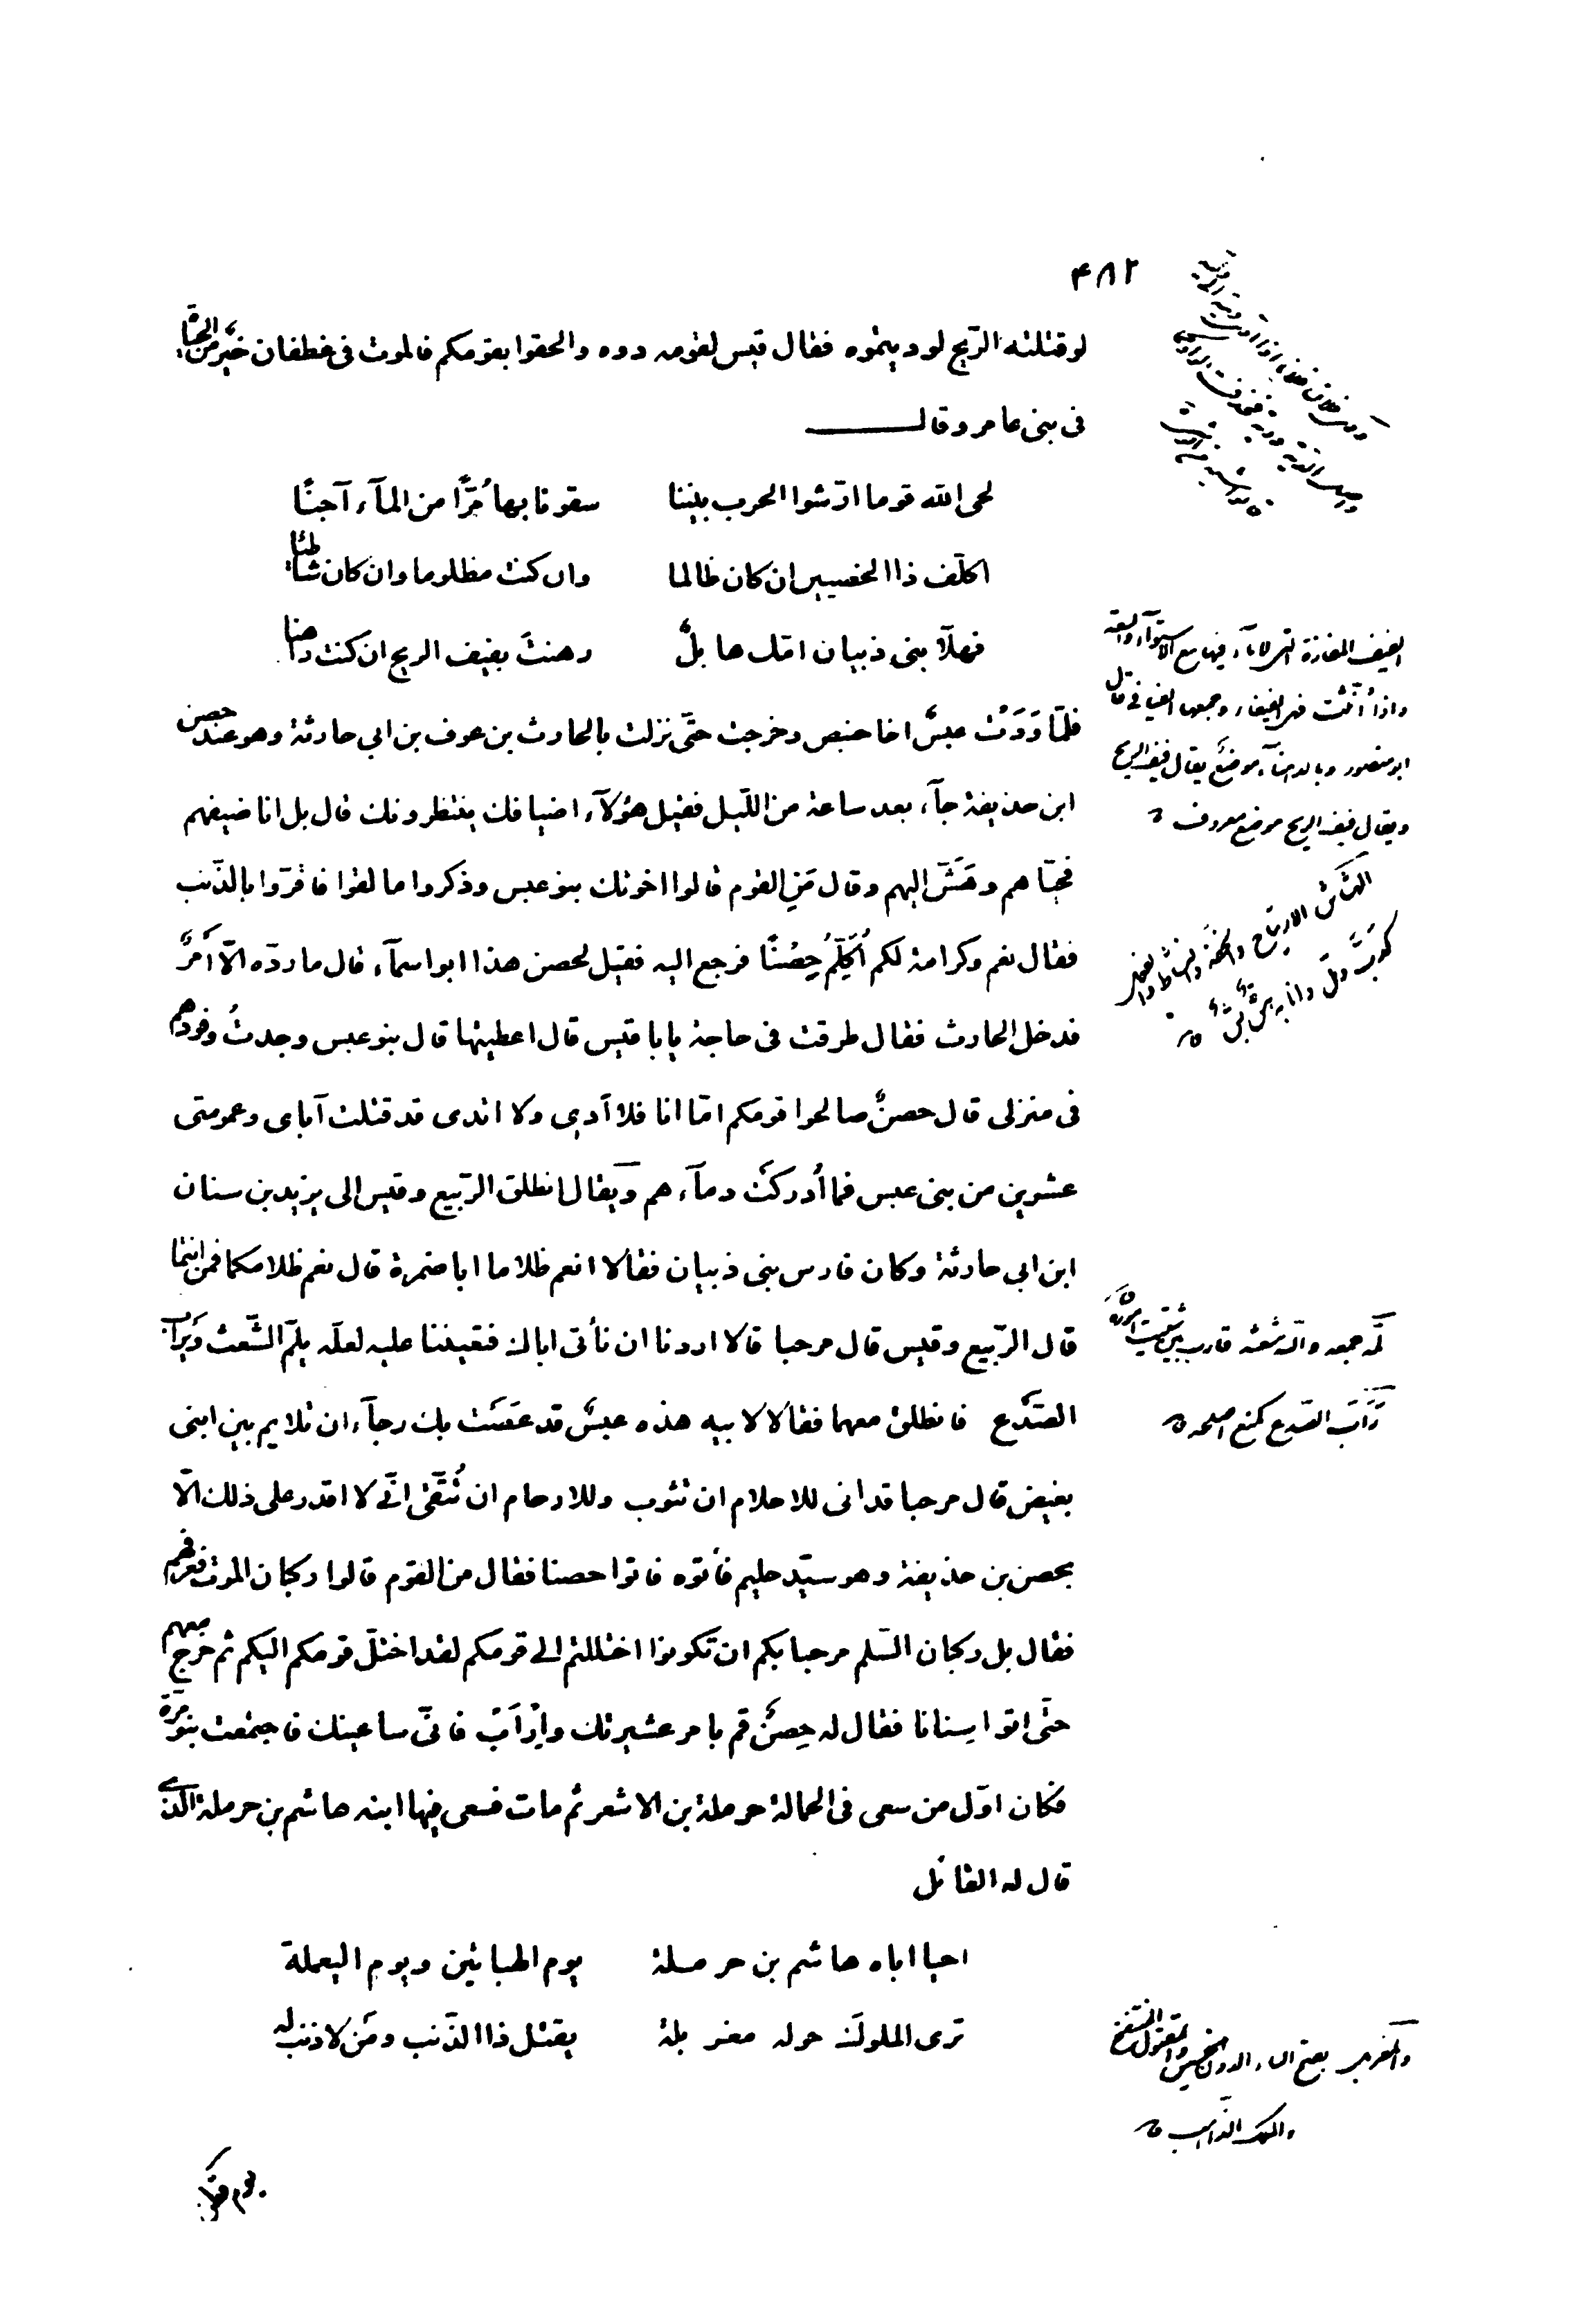 ۴۸۲
لو قتلته الريح لوديتموه فقال قيس لقومه دوه والحقوا بقومكم فالموت فى غطفان خيّر من الحياة
فى بنى عامر وقال
لحى الله قوما ارّشوا الحرب بيننا سقونا بها مُرًّا من المآء آجنًا
اكلّف ذا الخصيين ان كان ظالما وان كنت مظلوما وان كان شاطنا
فهلّا بنى ذبيان امّك هابلٌ رهنتَ بفيف الريح ان كنت راهنا
فلمّا وَدَتْ عبسٌ اخا حنبص وخرجت حتّى نزلت بالحارث بن عوف بن ابى حارثة وهو عند حصن
ابن حذيفة جآء بعد ساعة من اللّيل فقيل هؤلآء اضيافك ينتظرونك قال بل انا ضيفهم
فحيّاهم وهَشَّ اليهم وقال مَنِ القوم قالوا اخوتك بنو عبس وذكروا ما لقوا فاقرّوا بالذّنب
فقال نعم وكرامة لكم اُكلِّمُ حِصْنًا فرجع اليه فقيل لحصن هذا ابو اسمآء قال ما ردّه الّا اَمرٌ
فدخل الحارث فقال طرقت فى حاجة يابا قيس قال اعطيتها قال بنو عبس وجدتُ وفودهم
فى منزلى قال حصنٌ صالحوا قومكم امّا انا فلا اَدى ولا اتدى قد قتلت آباى وعمومتى
عشرين من بنى عبس فما أدركتُ دمآءهم ويقال انطلق الرّبيع وقيس الى يزيد بن سنان
ابن ابى حارثة وكان فارس بنى ذبيان فقالا انعم ظلاما ابا ضمرة قال نعم ظلامكما فمن انتما
قال الرّبيع وقيس قال مرحبا قالا اردنا ان نأتى اباك فتعيننا عليه لعلّه يلمّ الشّعث ويَرْاَب
الصّدْع فانطلق معهما فقالا لابيه هذه عبسٌ قد عَصَبت بك رجآء ان تلايم بين ابنى
بغيض قال مرحبا قد انى للاحلام ان تثوب وللارحام ان تُتَّقى انّى لا اقدر على ذلك الّا
بحصن بن حذيفة وهو سيّد حليم فأتوه فاتوا حصنا فقال من القوم قالوا ركبان الموت فعرفهم
فقال بل ركبان السّلم مرحبا بكم ان تكونوا اختللتم الى قومكم لقد اختلّ قومكم اليكم ثم خرج معهم
حتّى اتوا سنانا فقال له حِصنٌ قم بامر عشيرتك وارْاَبْ فانّى ساعينك فاجتمعت بنو مرة
فكان اوّل من سعى فى الحمالة حرملة بن الاشعر ثم مات فسعى فيها ابنه هاشم بن حرملة الّذى
قال له القائل
احيا اباه هاشم بن حرملة يوم الهبائين ويوم اليعملة
ترى الملوك حوله مغربلة يقتل ذا الذّنب ومَن لا ذنب له
الفيف المفازة التى لا مآء فيها مع الاستوآء والسعة
واذا أنّثت فهى الفيفاء وجمعها الفيافى قال
ابو منصور وبالدهنآء موضع يقال فيف الريح
ويقال فيف الريح موضع معروف
الهشاش الارتياح والخفّة والنشاط والفعل
كدبّ وملّ وانا به هشّ بشّ
لمّه جمعه والله شعثه قارب بين شتيت اموره
رَاَبَ الصّدع كمنع اصلحه
والمغربل بفتح البآء الدون الخسيس والمقتول المنتفخ
والملك الذاهب